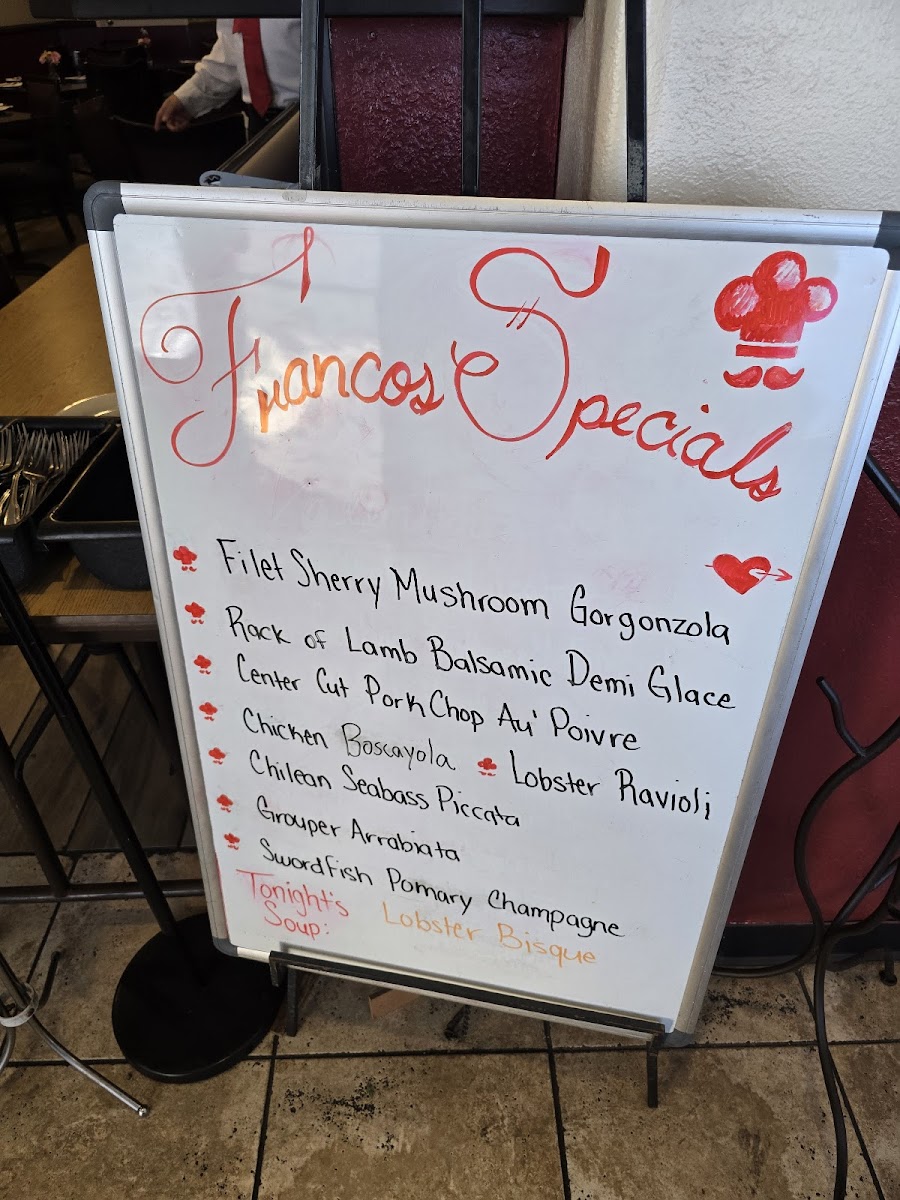 Francos' Specials
Filet Sherry Mushroom Gorgonzola
Rack of Lamb Balsamic Demi Glace
Center Cut Pork Chop Au' Poivre
Chicken Boscayola Lobster Ravioli
Chilean Seabass Piccata
Grouper Arrabiata
Swordfish Pomary Champagne
Tonight's
Soup: Lobster Bisque